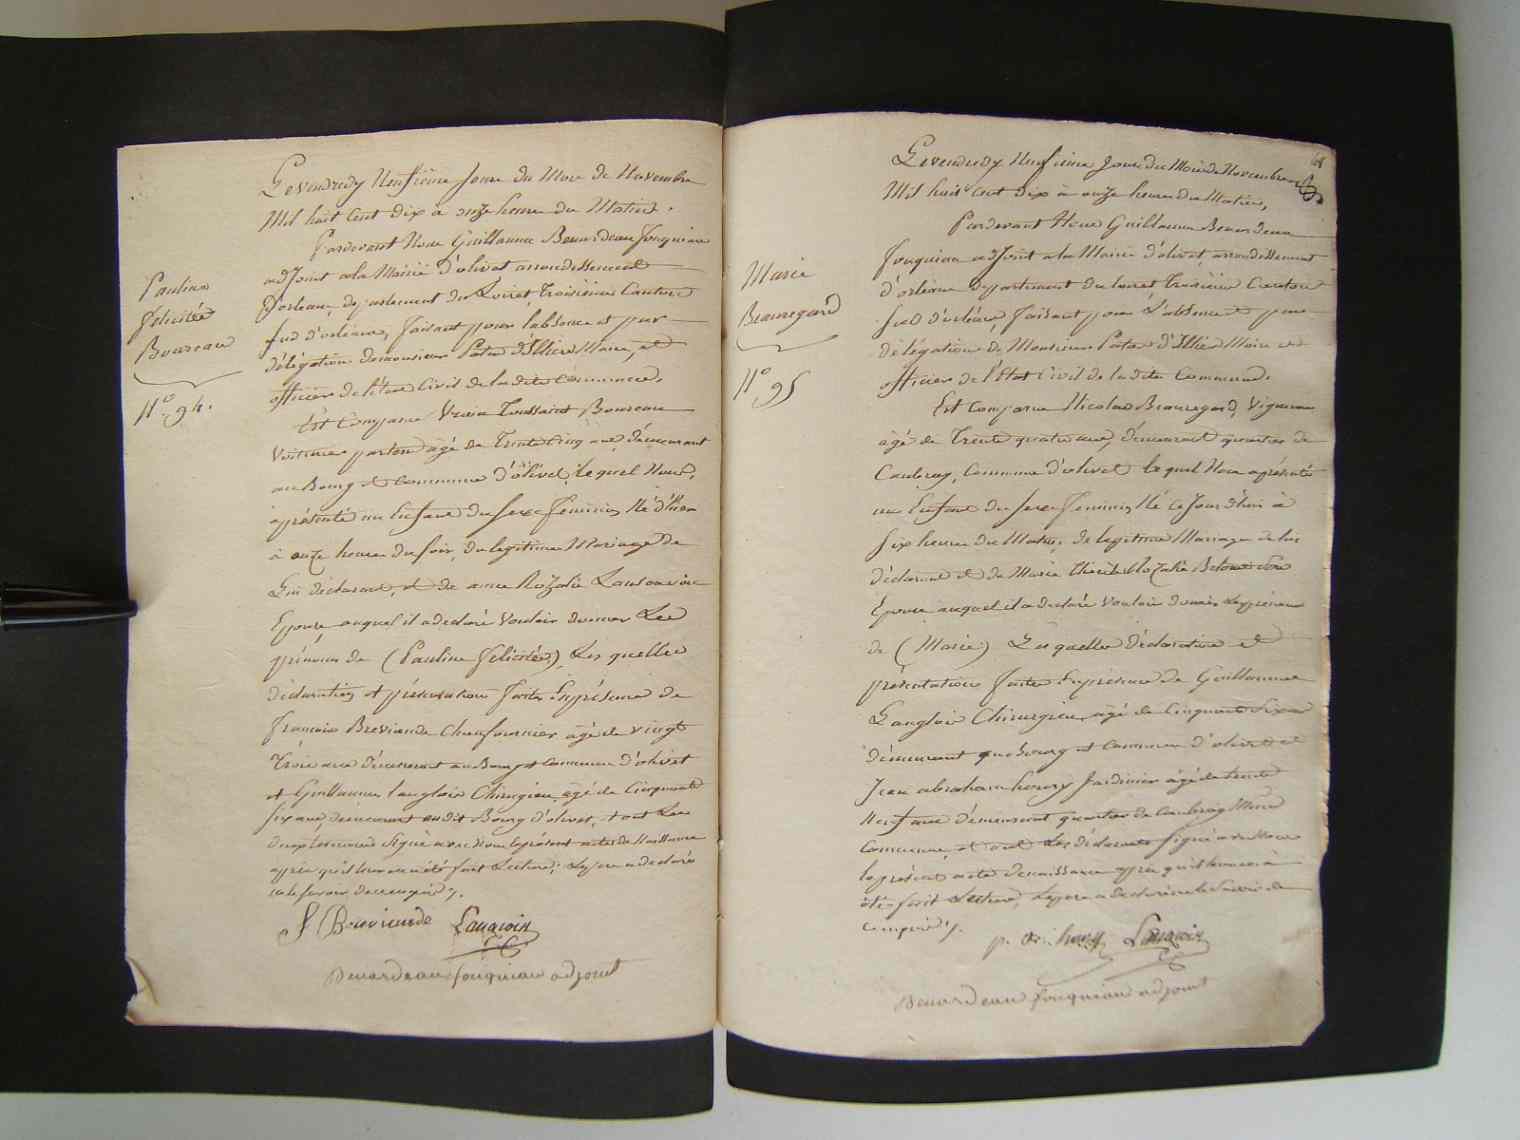 Pauline
felicitée
Boureau
N.° 94.
Le vendredy Neufieme Jour du Mois de Novembre
Mil huit Cent dix à onze heures du Matin.
Pardevant Nous Guillaume Beuardeau fouqueau
adjoint a la Mairie d'olivet arrondissement
d'orleans, departement du Loiret, Troisieme Canton
sud d'orleans, faisant pour l'absence et par
délégation de monsieur Pata d'Illiers Maire, et
officier de l'état Civil de la dite Commune.
Est Comparu Toussaint Boureau
agé de Trente Cinq ans, demeurant
au Bourg et Commune d'olivet, lequel Nous,
a présenté un Enfant du sexe feminin Né d'hier
à onze heures du soir, du legitime Mariage de
Lui déclarant, et de anne Rozalie
Epouse auquel il a declaré Vouloir donner Les
prénoms de (Pauline felicitée) Les quelles
déclaration et présentation faites En présence de
francois Breviande Chaufournier âgé de vingt
Trois ans demeurant au Bourg et Commune d'olivet
et Guillaume Langlois Chirurgien, agé de Cinquante
six ans, demeurant au dit Bourg d'olivet, et ont Les
deux temoins Signé avec Nous le présent acte de Naissance
après qu'il leur en a été fait Lecture; Le pere a declaré
ne le savoir de ce enquis.
f Breviande Langlois
Beuardeau fouqueau adjoint
Marie
Beauregard
N.° 95
Le vendredy Neufieme Jour du Mois de Novembre
Mil huit Cent dix à onze heures du Matin,
Pardevant Nous Guillaume Beuardeau
fouqueau adjoint a la Mairie d'olivet, arrondissement
d'orléans departement du loiret Troisieme Canton
sud d'orléans, faisant pour L'absence et par
délégation de Monsieur Pata d'Illiers Maire et
officier de l'état Civil de la dite Commune.
Est Comparu Nicolas Beauregard, Vigneron
agé de Trente quatre ans, demeurant quartier de
Caubray, Commune d'olivet lequel Nous a présenté
un Enfant du sexe feminin Né ce Jourd'hui à
six heures du Matin, de legitime Mariage de lui
déclarant et de Marie Rozalie
Epouse auquel il a declaré Vouloir donner Le prénom
de (Marie) Les quelles déclaration et
présentation faites En présence de Guillaume
Langlois Chirurgien, agé de Cinquante Six ans
demeurant au bourg et Commune d'olivet et
Jean abraham houry Jardinier agé de trente
Neuf ans demeurant quartier de Caubray Même
Commune, et ont Les signé avec Nous
le présent acte de naissance après qu'il leur en a
été fait Lecture, Le pere a declaré ne le savoir de
ce enquis.
houry Langlois
Beuardeau fouqueau adjoint